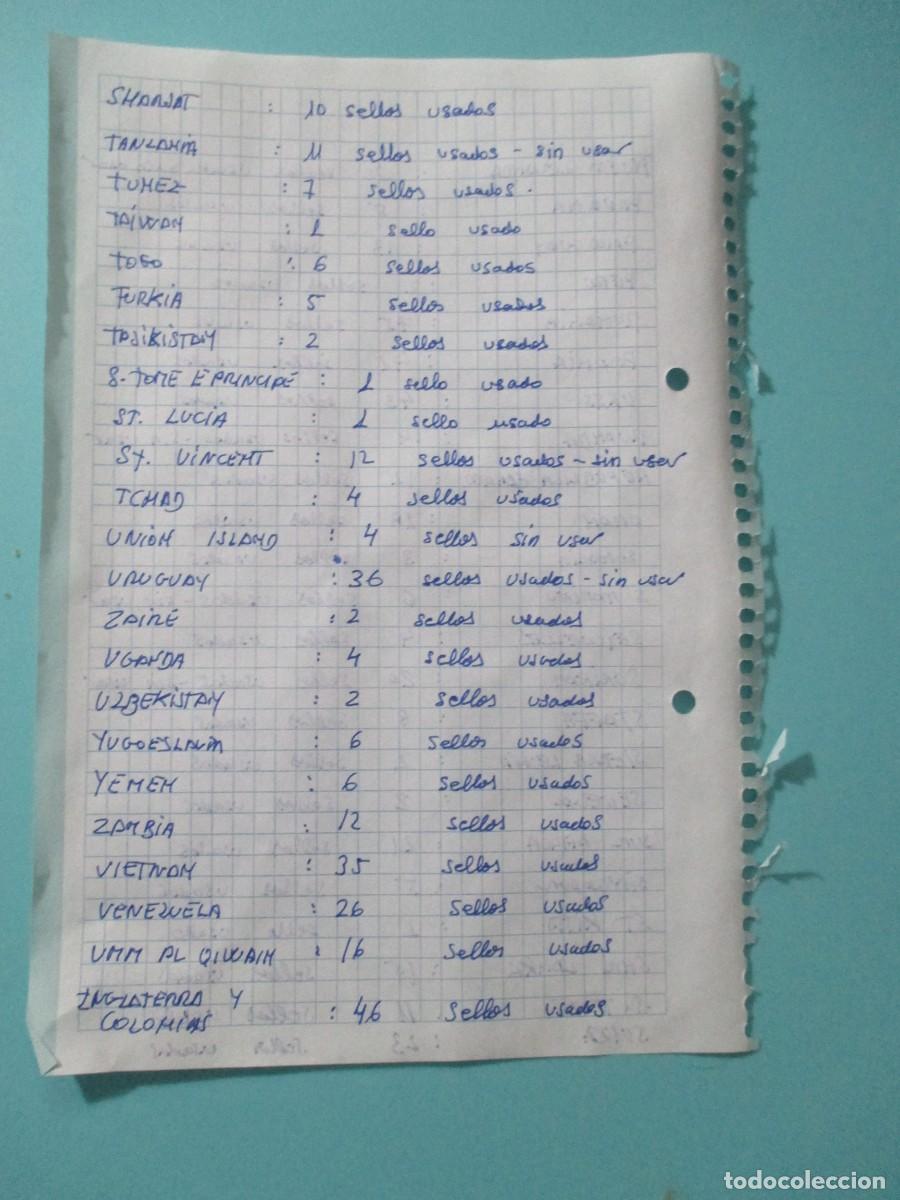 SHARJAT : 10 sellos usados
TANZANIA : 11 sellos usados - sin usar
TUNEZ : 7 sellos usados.
TAÍWAN : 1 sello usado
TOGO : 6 sellos usados
TURKIA : 5 sellos usados
TAJIKISTAN : 2 sellos usados
S. TOME E PRINCIPÉ : 1 sello usado
ST. LUCÍA : 1 sello usado
ST. VINCENT : 12 sellos usados - sin user
TCHAD : 4 sellos usados
UNIÓN ÍSLAND : 4 sellos sin user
URUGUAY : 36 sellos usados - sin user
ZAIRÉ : 2 sellos usados
UGANDA : 4 sellos usados
UZBEKISTAN : 2 sellos usados
YUGOESLAVIA : 6 sellos usados
YEMEN : 6 sellos usados
ZAMBIA : 12 sellos usados
VIETNAM : 35 sellos usados
VENEZUELA : 26 sellos usados
UMM AL QIWAIN : 16 sellos usados
INGLATERRA Y
COLONIAS : 46 sellos usados
todocoleccion